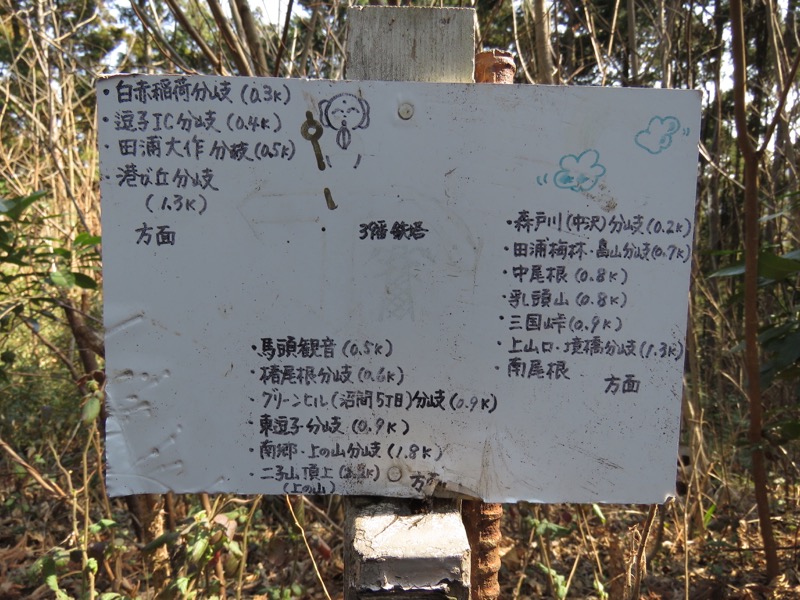 ・白赤稲荷分岐(0.3K)
・逗子IC分岐(0.4K)
・田浦大作分岐(0.5K)
・港が丘分岐
(1.3K)
方面
3番鉄塔
・森戸川(中沢)分岐(0.2K)
・田浦梅林・畠山分岐(0.7K)
・中尾根(0.8K)
・乳頭山(0.8K)
・三国峠(0.9K)
・上山口・境橋分岐(1.3K)
・南尾根
方面
・馬頭観音(0.5K)
尾根分岐(0.6K)
・グリーンヒル(沼間5丁目)分岐(0.9K)
・東逗子分岐(0.9K)
・南郷・上の山分岐(1.8K)
・二子山頂上
(上の山)
方面